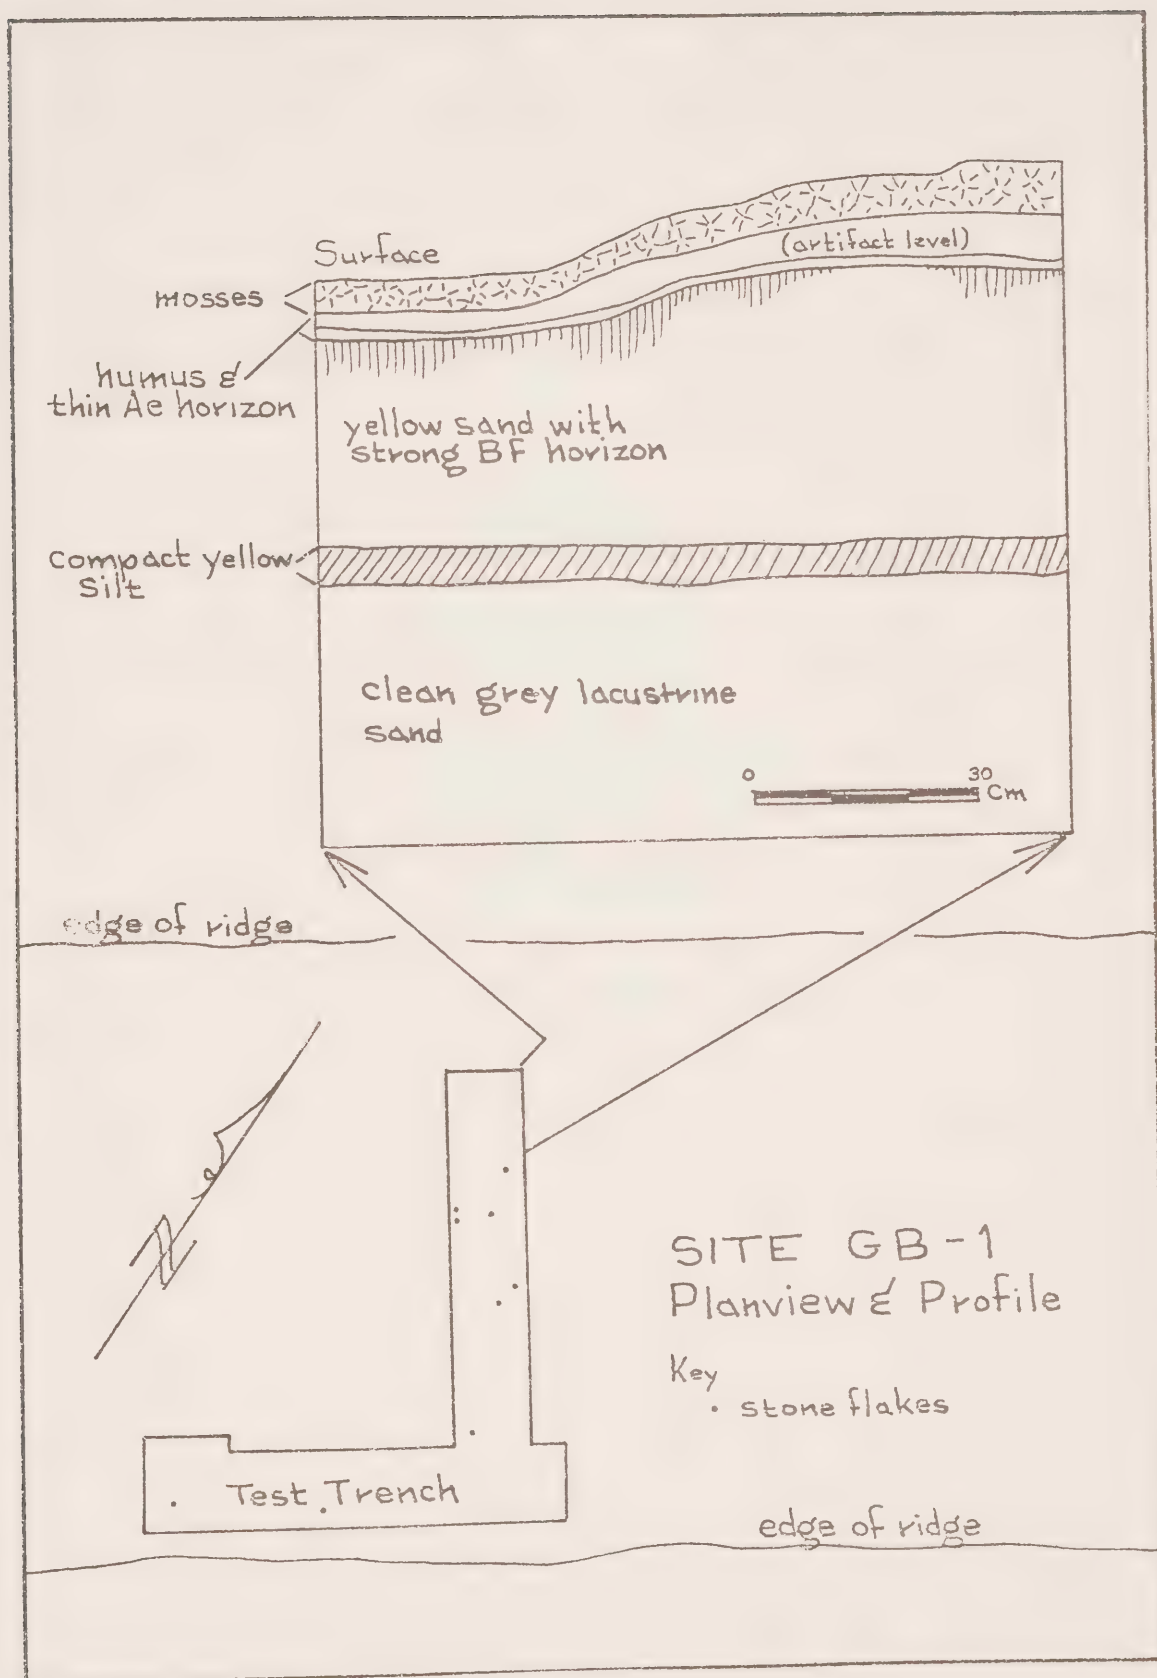 Surface
(artifact level)
mosses
humus &
thin Ae horizon
yellow sand with
strong BF horizon
compact yellow
silt
clean grey lacustrine
sand
0 30
Cm
edge of ridge
N
SITE GB-1
Planview & Profile
Key
• stone flakes
Test Trench
edge of ridge